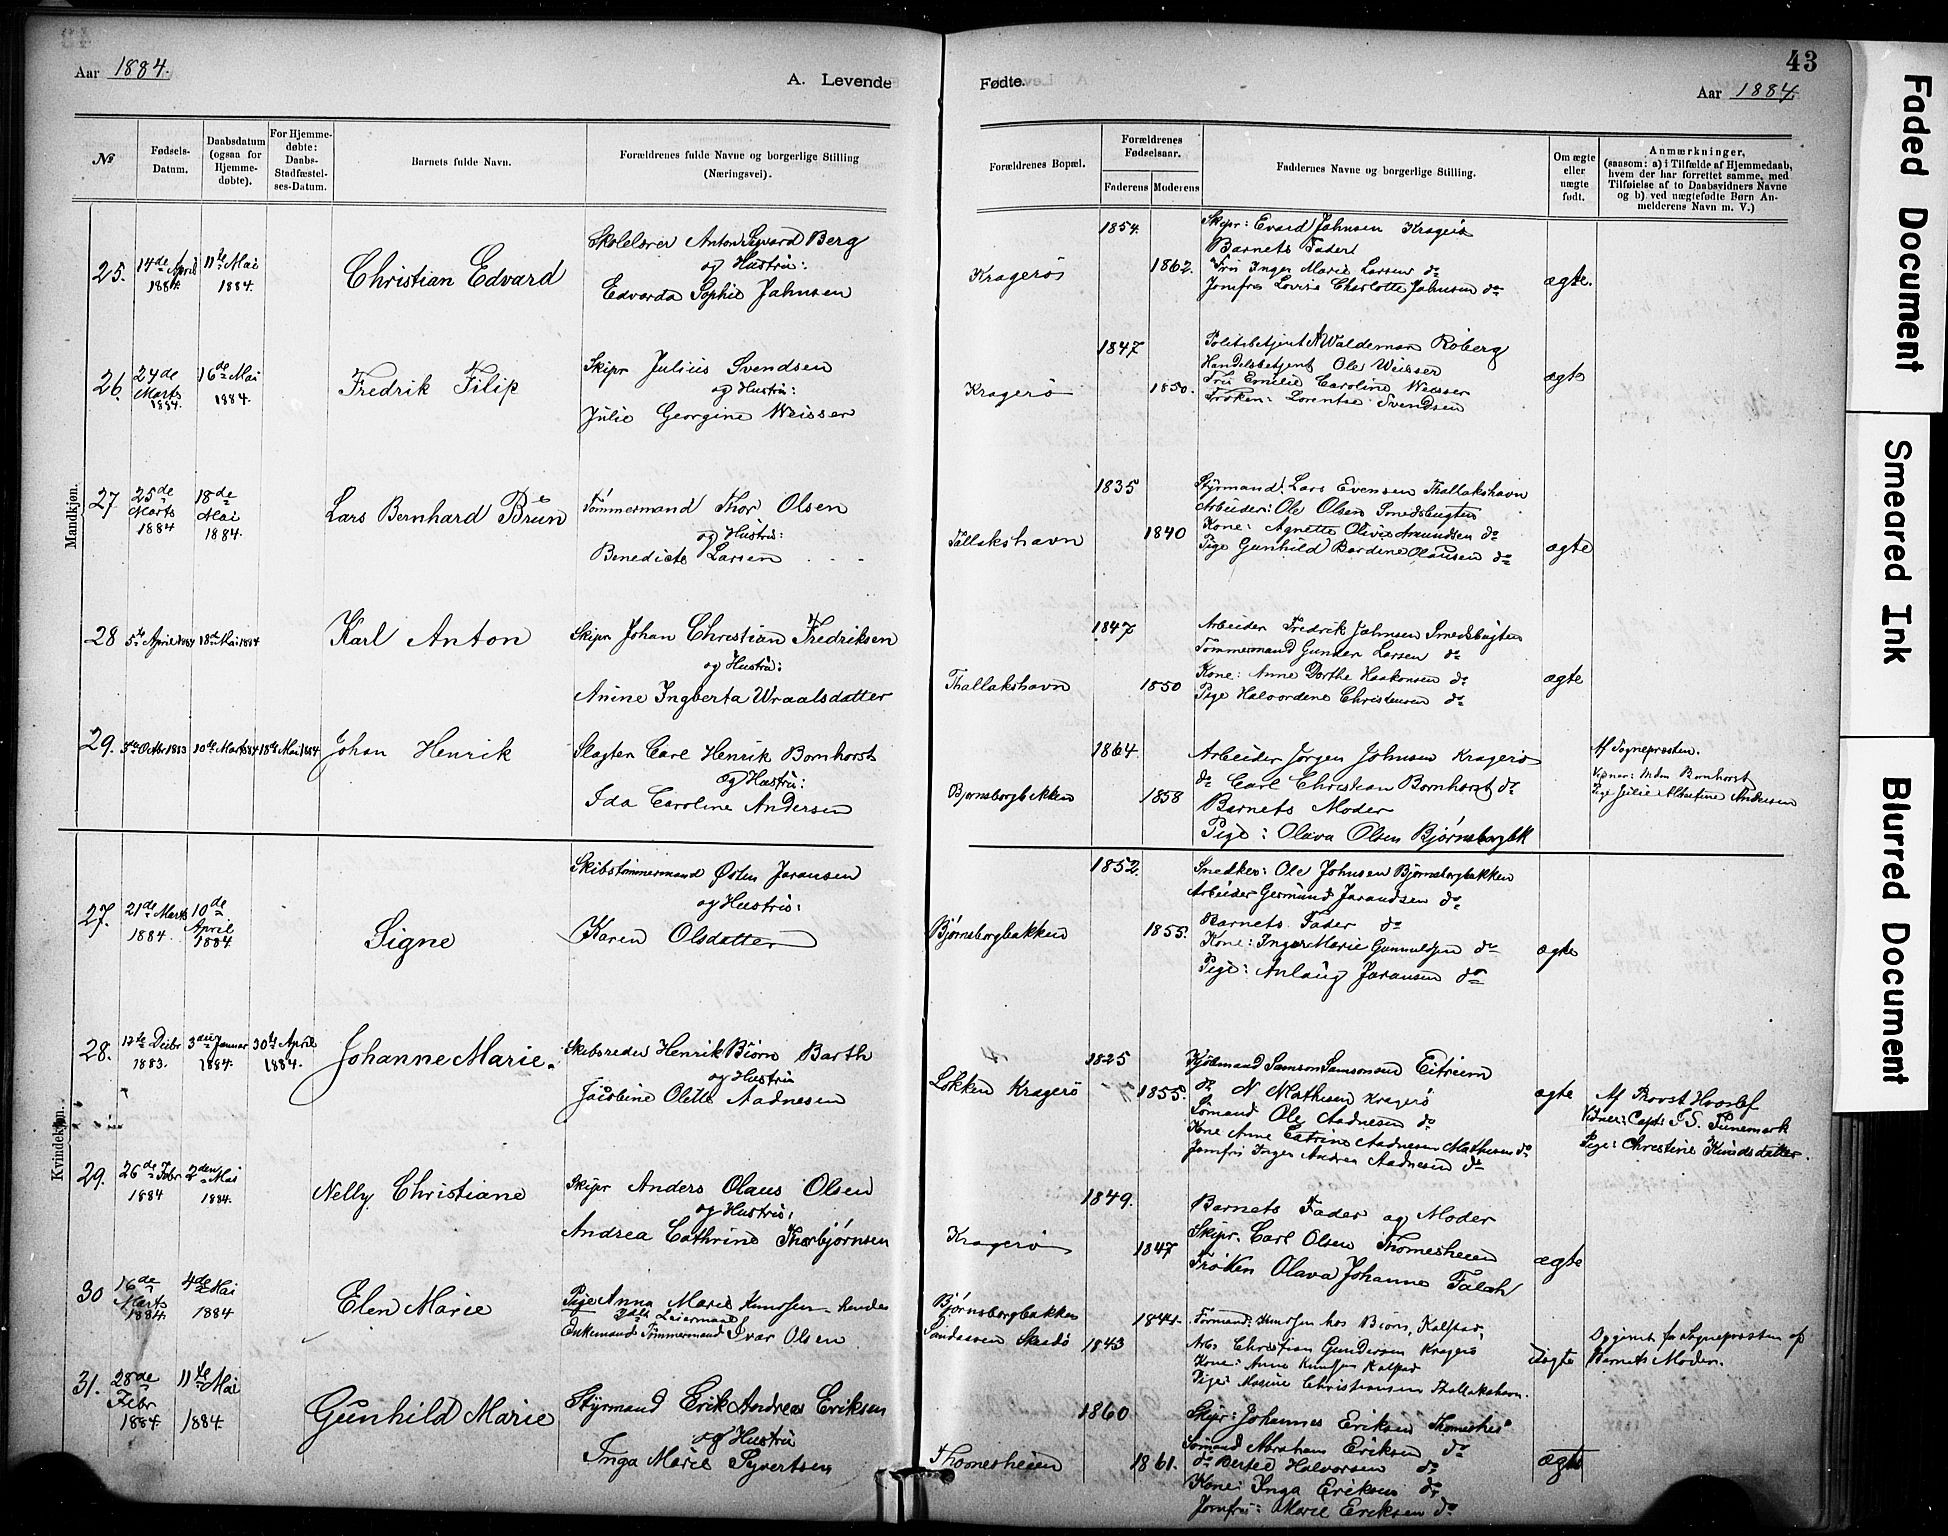 43
Aar 1884.
A. Levende Fødte.
Aar 1884
Faded Document
Smeared Ink
Blurred Document
№
Fødsels-Datum.
Daabsdatum (ogsaa for Hjemme-døbte).
For Hjemme-døbte: Daabs-Stadfæstel-ses-Datum.
Barnets fulde Navn.
Forældrenes fulde Navne og borgerlige Stilling (Næringsvei).
Forældrenes Bopæl.
Forældrenes Fødselsaar.
Faderens Moderens
Faddernes Navne og borgerlige Stilling.
Om ægte eller uægte født.
Anmærkninger, (saasom: a) i Tilfælde af Hjemmedaab, hvem der har forrettet samme, med Tilføielse af to Daabsvidners Navne og b) ved uægtefødte Børn An-melderens Navn m. V.)
Mandkjøn.
25. 14de April 1884. 11te Mai 1884.
Christian Edvard
Skolelærer Anton Sigvard Berg
og Hustru:
Edvarda Sophie Jahnsen
Kragerö
1854.
1862.
Skipr: Evard Jahnsen Kragerö
Barnets Fader
Fru Inger Marie Larsen do
Jomfru Lovise Charlotte Jahnsen do
ægte.
26. 24de Marts 1884. 16de Mai 1884.
Fredrik Filip
Skipr Julius Svendsen
og Hustru:
Julie Georgine Weisser
Kragerö
1847
1850.
Politibetjent A Waldemar Roberg
Handelsbetjent Ole Weisser
Fru Emilie Caroline Weisser
Frøken: Lorentse Svendsen
ægte
27 25de Marts 1884 18de Mai 1884.
Lars Bernhard Brun
Tömmermand Thor Olsen
og Hustru:
Benedicte Larsen
Tallakshavn
1835
1840
Styrmand: Lars Evensen Thallakshavn
Arbeider: Ole Olsen Smedsbugten
Kone: Agnette Olivie Amundsen do
Pige Gunhild Bardine Olausen do
ægte
28 5te April 1884 18de Mai 1884
Karl Anton
Skipr Johan Christian Fredriksen
og Hustru:
Anine Ingberta Wraalsdatter
Thallakshavn
1847
1850
Arbeider Fredrik Jahnsen Smedsbugten
Tömmermand Gunder Larsen do
Kone: Anne Dorthe Haakonsen do
Pige Halvordene Christensen do
ægte
29. Octbr 1883 10de Marts 84 18de Mai 1884
Johan Henrik
Slagter Carl Henrik Bornhorst
og Hustru:
Ida Caroline Andersen
Bjørnsborgbakken
1864.
1858
Arbeider Jørgen Johnsen Kragerö
do Carl Christian Bornhorst do
Barnets Moder
Pige: Olava Olsen Bjørnsborgbk
Af Sognepresten.
Vidner: Mdm Bornhorst
Pige Julie Albertine Andersen
Kvindekjøn.
27. 21de Marts 1884. 10de April 1884
Signe
Skibstömmermand Østen Jaransen
og Hustru:
Karen Olsdatter
Bjørnsborgbakken
1852.
1855.
Snedker: Ole Johnsen Bjørnsborgbakken
Arbeider Germund Jarandsen do
Barnets Fader do
Kone: Inger Marie Gunnulfsen do
Pige: Anlaug Jaransen do
ægte
28. 17de Decbr 1883. 3die Januar 1884. 30te April 1884.
Johanne Marie.
Skibsreder Henrik Biørn Barth
og Hustru
Jacobine Olette Aadnesen
Løkken Kragerö
1825
1855.
Kjøbmand Samson Samsonsen Eitreim
do N Mathisen Kragerö
Sömand Ole Aadnesen do
Kone Anne Catrine Aadnesen Mathisen do
Jomfru Inger Andrea Aadnesen do
ægte
Af Provst Hvoslef
Vidner: Capt: T S. Tunemark
Pige: Christine Knudsdatter.
29. 26de Febr 1884 2den Mai 1884.
Nelly Christiane
Skipr Anders Olaus Olsen
og Hustru,
Andrea Cathrine Thorbjørnsen
Kragerö
1849.
1847
Barnets Fader og Moder
Skipr. Carl Olsen Thomesheien
Frøken Olava Johanne Falch
ægte
30 16de Marts 1884 4de Mai 1884
Elen Marie
Pige Anna Marie Knudsen hendes
Leiermaal
Enkemand Tømmermand Ivar Olsen
Bjørnsborgbakken
Skaadö
1844.
1843
Formand: Knudsen hos Biørn, Kalstad,
Arb. Christian Gundersen Kragerö
Kone: Anne Knudsen Kalstad
Pige: Maxine Christiansen Thallakshavn.
uægte
Opgivet for Sognepresten af
Barnets Moder.
31. 28de Febr 1884 11te Mai 1884
Gunhild Marie
Styrmand Erik Andreas Eriksen
og Hustru
Inga Marie Syvertsen
Thomesheien
1860
1861.
Skipr: Johannes Eriksen Thomeshei
Sömand Abraham Eriksen do
do Bertel Halvorsen do
Kone: Inga Eriksen do
Jomfru: Marie Eriksen do
ægte